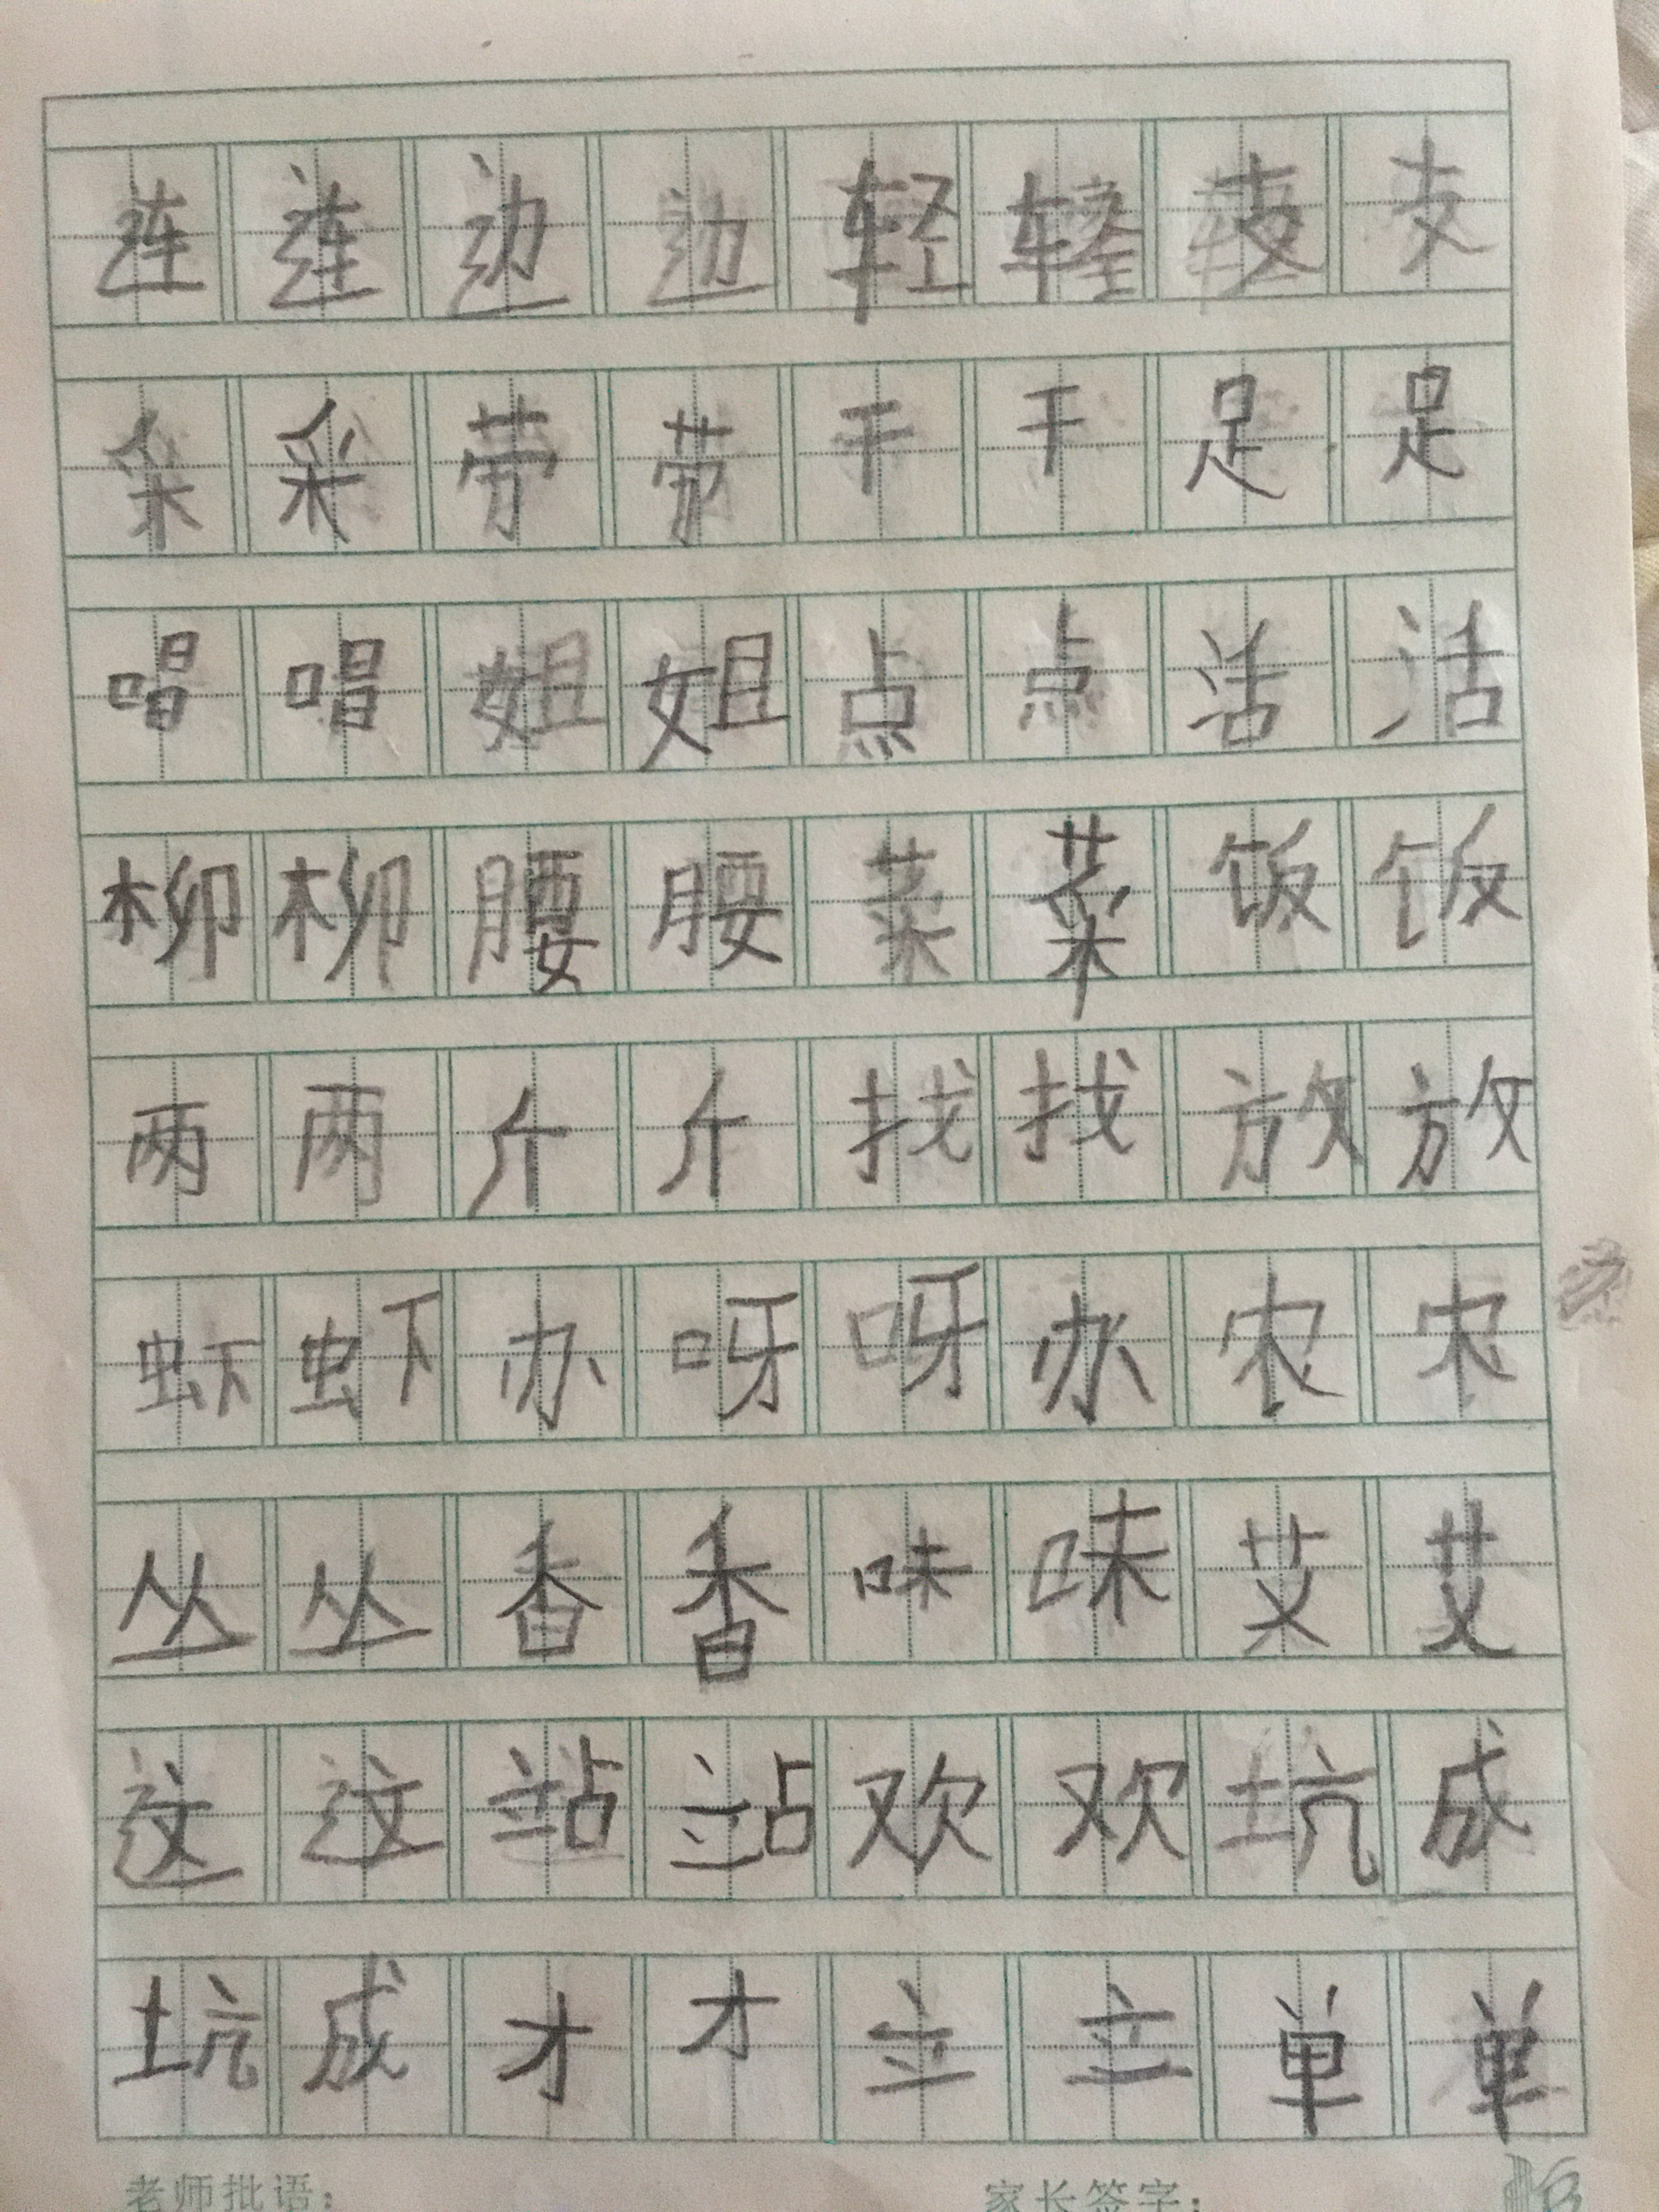 连连边边轻轻支支
采采劳劳干干足足
唱唱姐姐点点活活
柳柳腰腰菜菜饭饭
两两斤斤找找放放
虾虾办呀呀办农农
丛丛香香味味艾艾
这这站站欢欢坑成
坑成才才立立单单
老师批语： 家长签字：